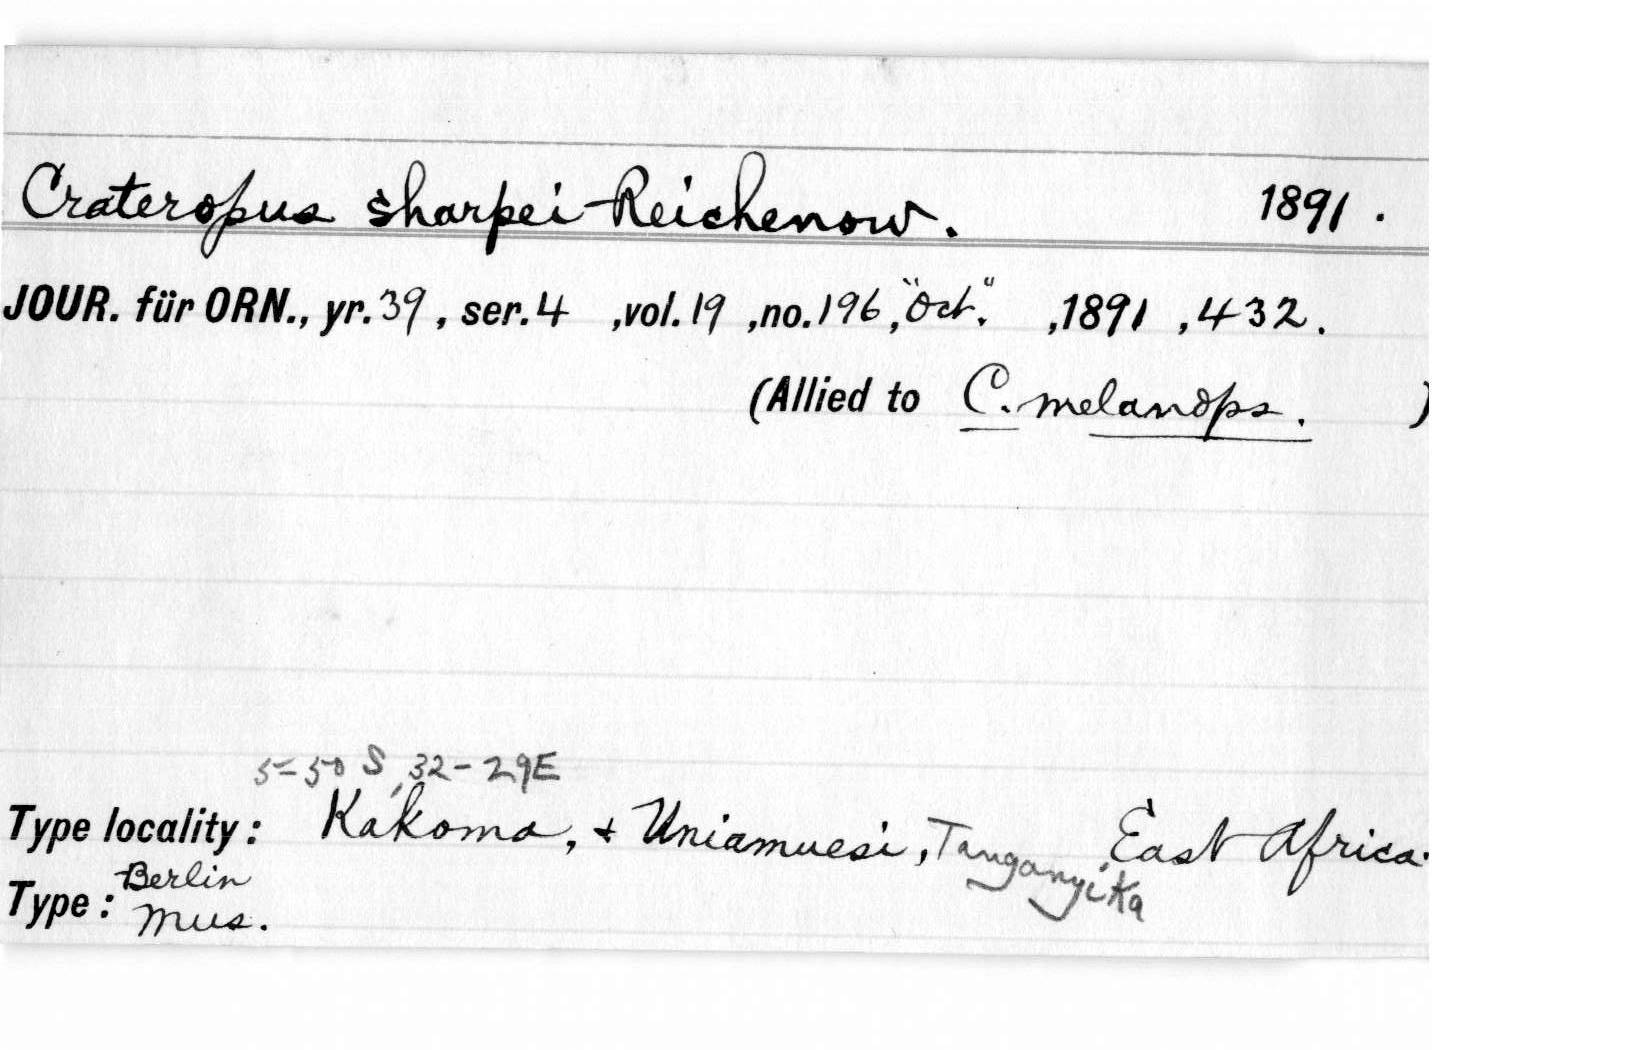 Crateropus sharpei Reichenow. 1891.
JOUR. für ORN., yr. 39, ser. 4, vol. 19, no. 196, "Oct.", 1891, 432.
(Allied to C. melanops. )
5-50 S, 32-29E
Type locality: Kakoma, + Uniamuesi, Tanganyika, East Africa.
Type: Berlin
Mus.